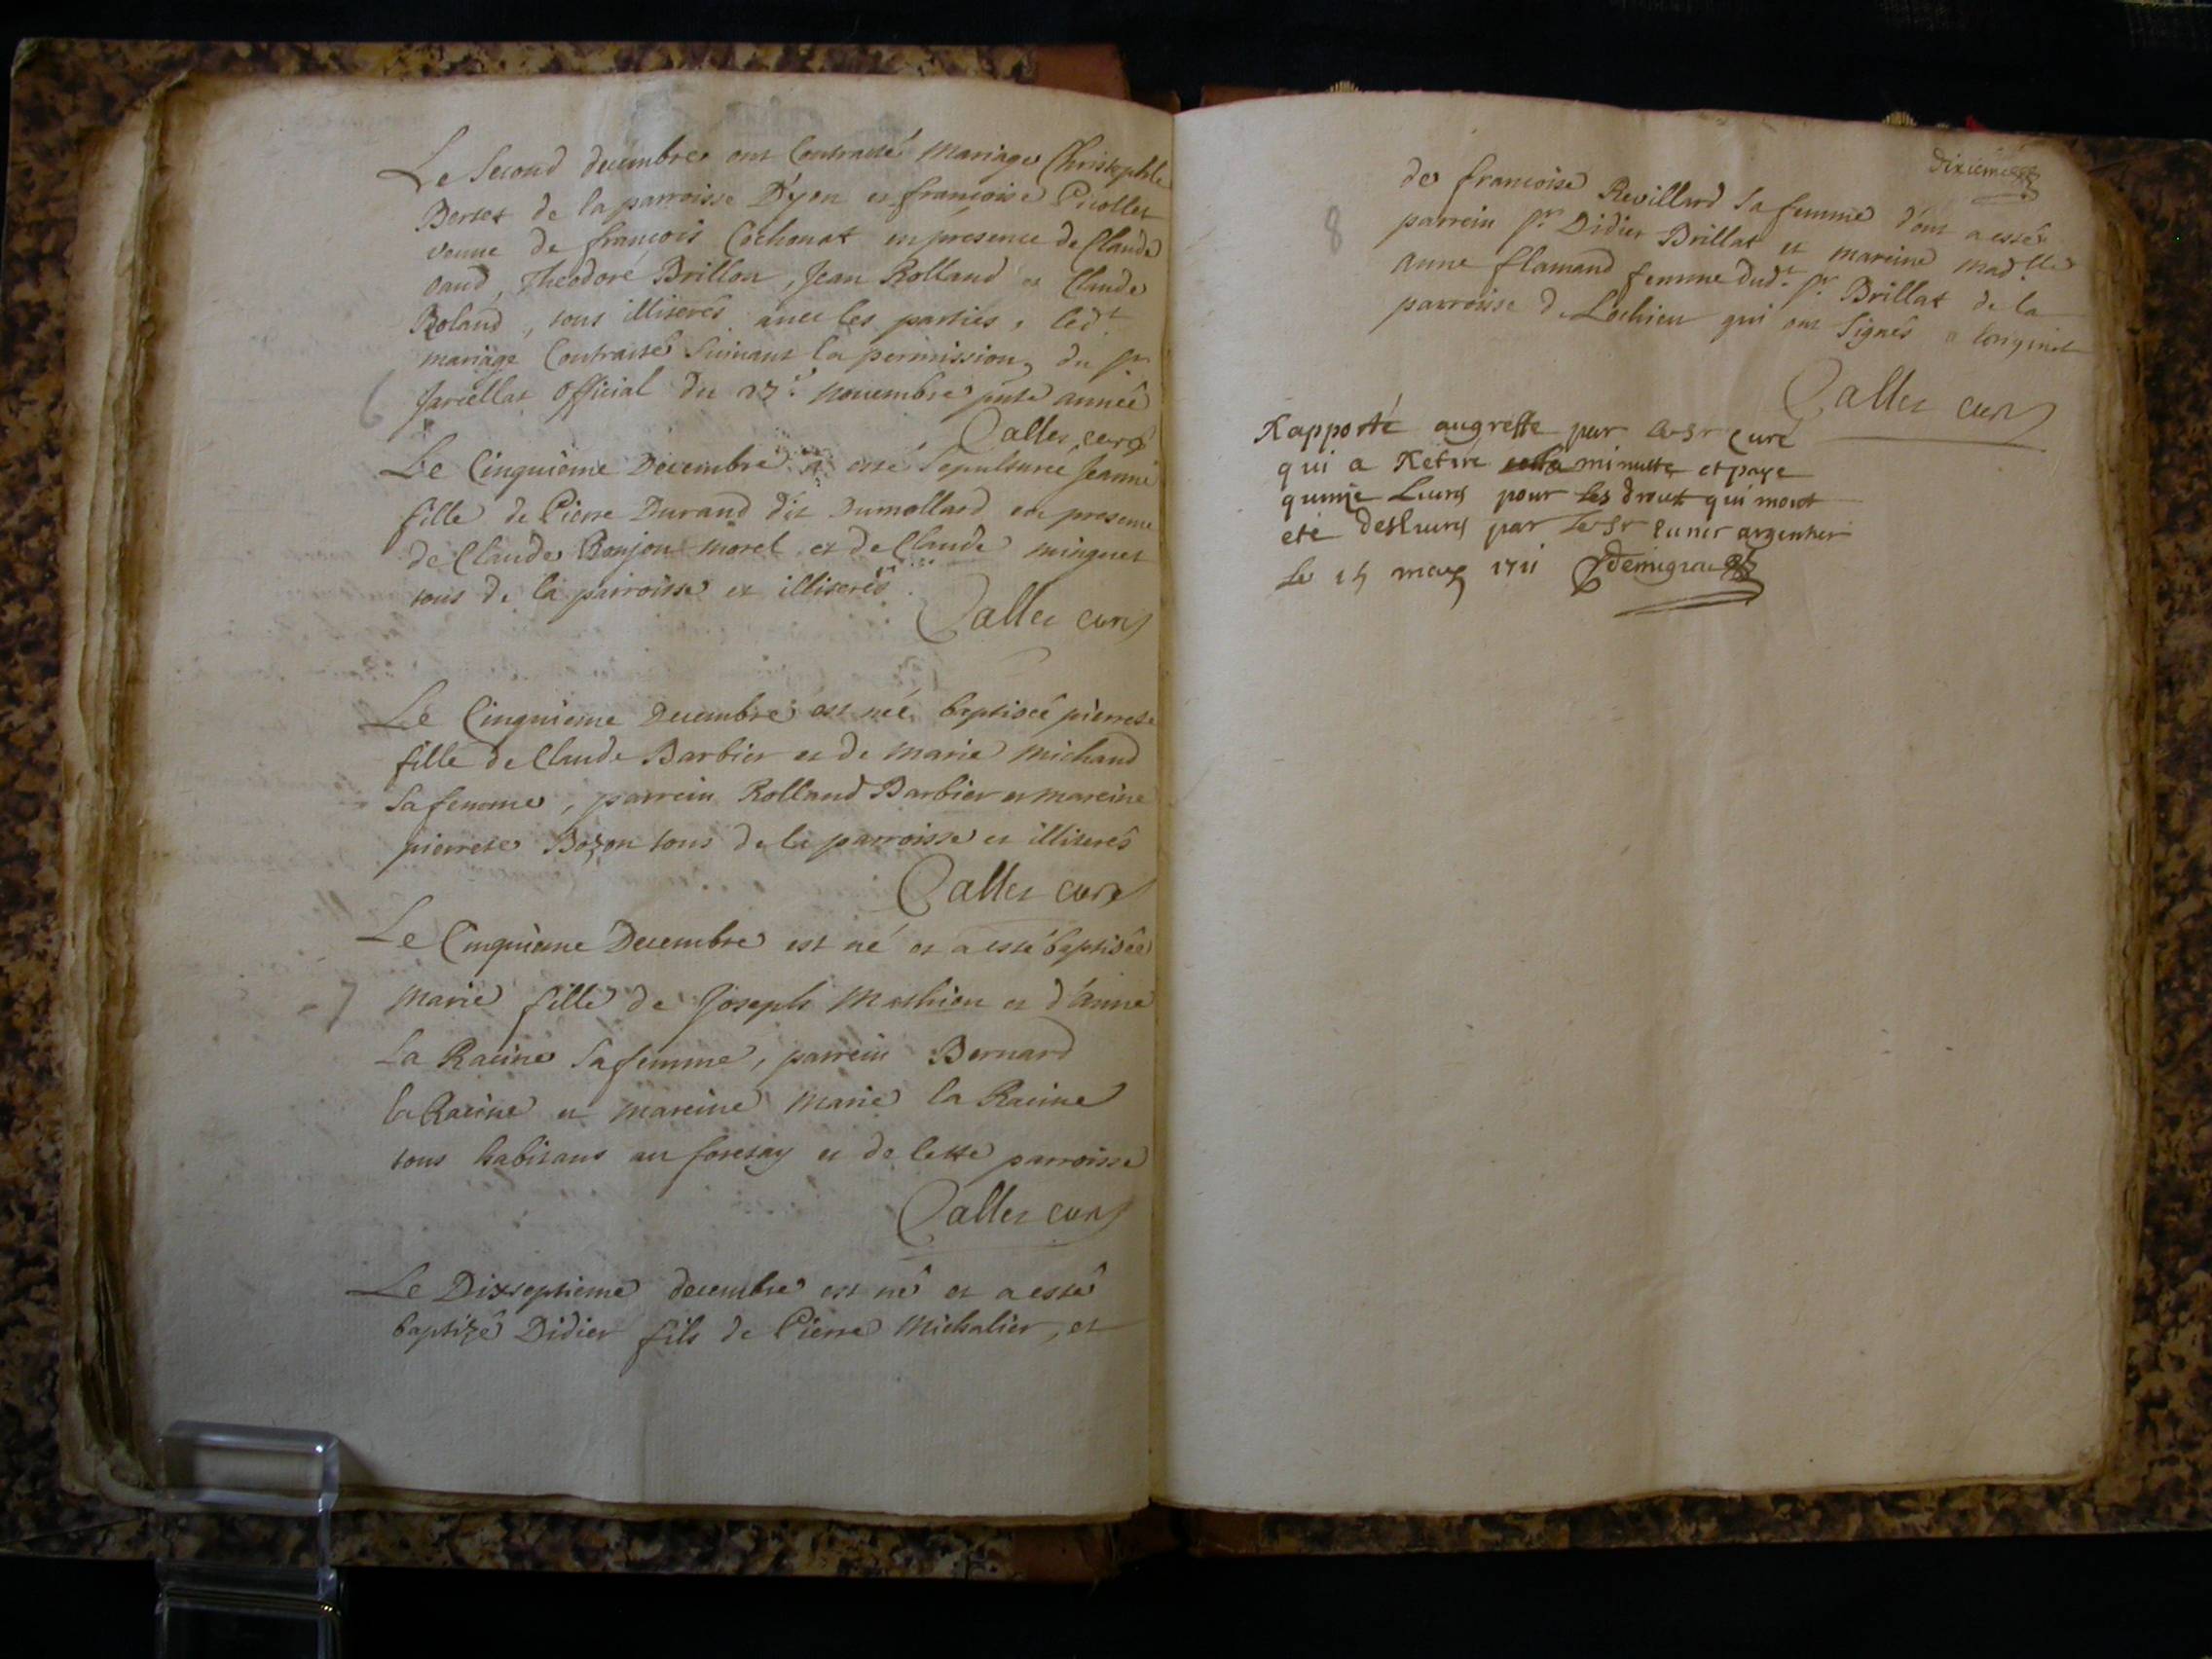 Le second decembre ont Contracté Mariage Christophle
Bertet de la parroisse D'yon et francoise Picollet
veuve de françois Cochonat en presence de Claude
, Theodore Brillon, Jean Rolland et Claude
Roland, tous illiterés avec les parties, led.t
mariage Contracté suivant la permission, du sr
Jarcellat Official du novembre année
6
Callet curé
Le Cinquieme Decembre a esté sepulturée Jeanne
fille de Pierre Durand dit Dumollard en presence
de Claude Bonjon morel et de Claude minguet
tous de la parroisse et illiterés
Callet curé
Le Cinquieme Decembre est née baptisée pierrete
fille de Claude Barbier et de Marie Michaud
sa femme, parrein Rolland Barbier et mareine
pierrete Bozon tous de la parroisse et illiterés
Callet curé
Le Cinquieme Decembre est né et a esté baptisée
7
Marie fille de Joseph Mathieu et d'anne
La Racine sa femme, parrein Bernard
la Racine et mareine Marie la Racine
tous habitans au foretay et de cette parroisse
Callet curé
Le Dixseptieme decembre est né et a esté
baptizé Didier fils de Pierre Michalier, et
dixieme
de francoise Revillard sa femme dont a esté
8
parrein sr Didier Brillat et mareine Madlle
anne flamand femme dud.t sr Brillat de la
parroisse de Lochieu qui ont signés a loriginal
Callet curé
Rapporté au greffe par le sr curé
qui a Retiré minutte et paye
quinze Livres pour les droits qui mont
eté deslivrés par le sr argentier
le 15 mars 1711